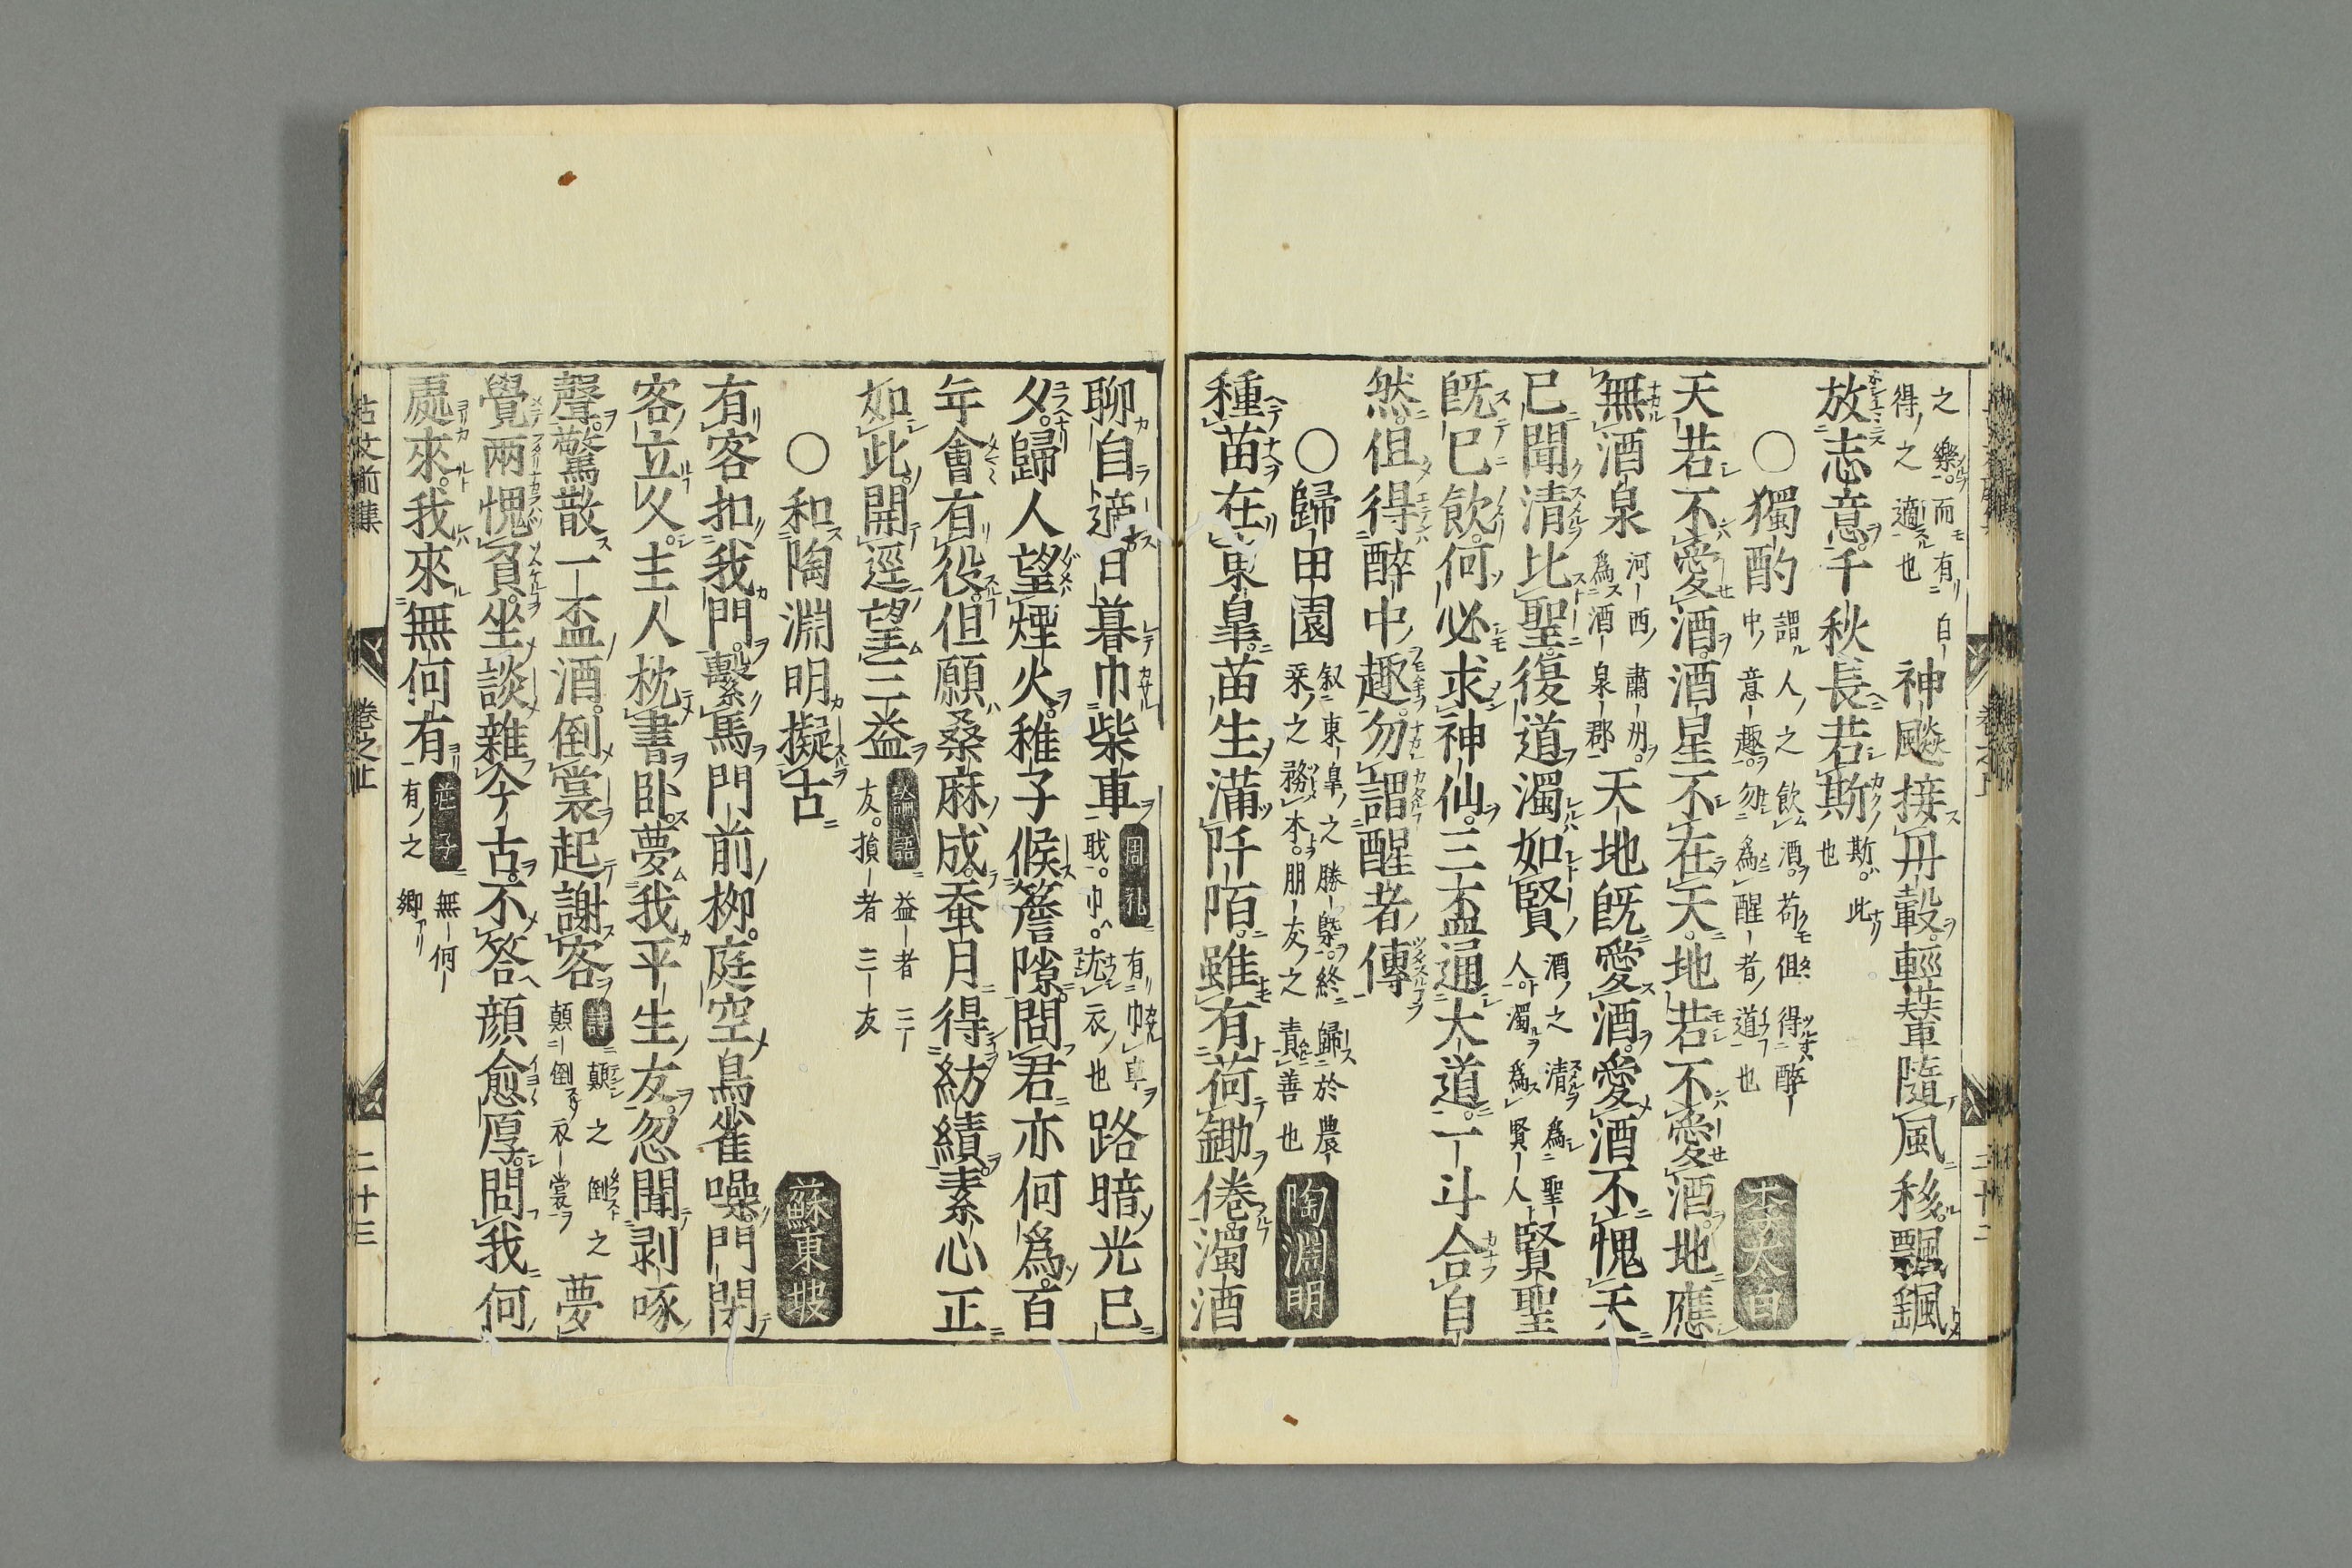 之樂而有自
得之適也
神飈接丹轂輕輦隨風移飄颻
放志意千秋長若斯
斯此
也
○獨酌
謂人之飲酒苟但得醉
中意趣勿為醒者道也
李太白
天若不愛酒酒星不在天地若不愛酒地應
無酒泉
河西肅州
為酒泉郡
天地既愛酒愛酒不愧天
已聞清比聖復道濁如賢
酒之清為聖
人濁為賢人
賢聖
既已飲何必求神仙三盃通大道一斗合自
然但得醉中趣勿謂醒者傳
○歸田園
叙東皐之勝槩終歸於農
桒之務本朋友之責善也
陶淵明
種苗在東皐苗生滿阡陌雖有荷鋤倦濁酒
聊自適日暮巾柴車
周礼
有巾車
職巾衣也
路暗光已
夕歸人望煙火稚子候簷隙問君亦何為百
年會有役但願桑麻成蚕月得紡績素心正
如此開逕望三益
論語
益者三
友損者三友
○和陶淵明擬古
蘇東坡
有客扣我門繫馬門前栁庭空鳥雀噪門閉
客立久主人枕書卧夢我平生友忽聞剥啄
聲驚散一盃酒倒裳起謝客
詩
顛之倒之
顛倒衣裳
夢
覺兩愧負坐談雜今古不答顔愈厚問我何
處來我來無何有
莊子
無何
有之鄉
古文前集
卷之上
二十三